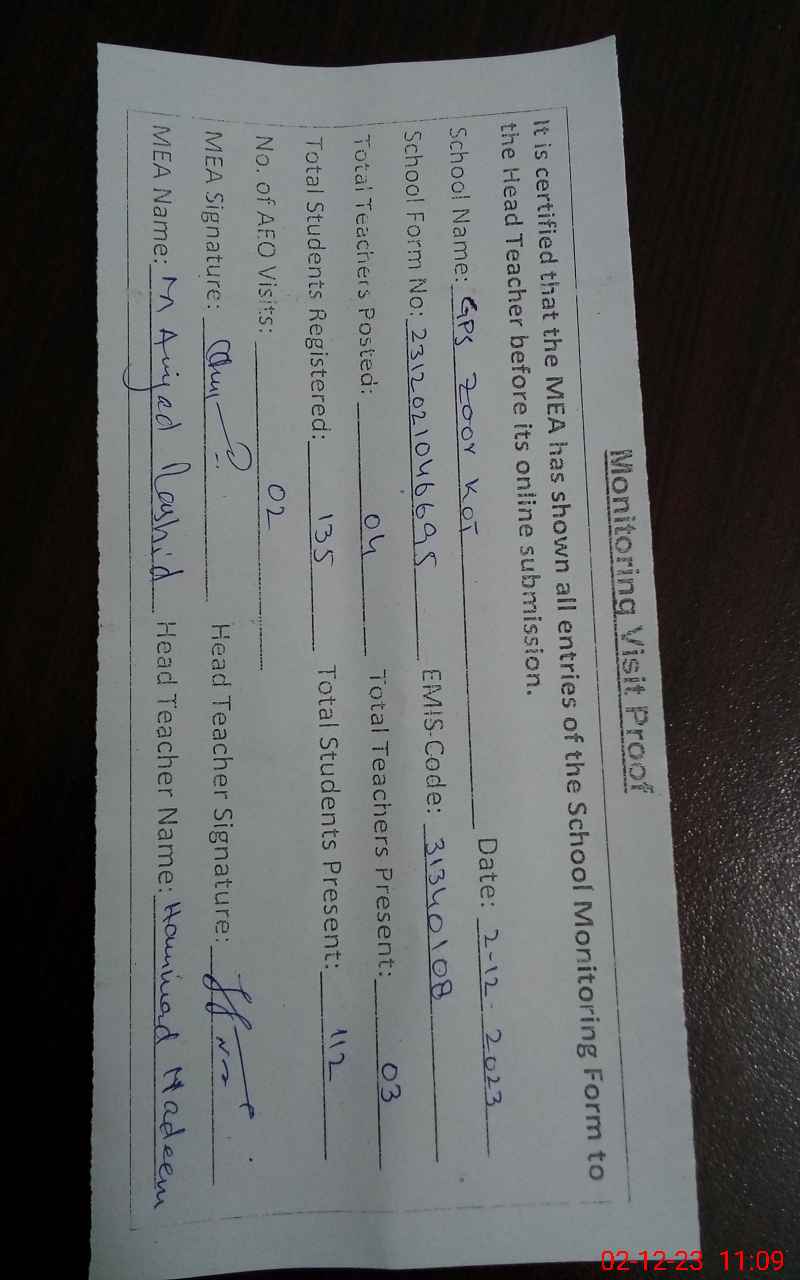 Monitoring Visit Proof
It is certified that the MEA has shown all entries of the School Monitoring Form to
the Head Teacher before its online submission.
School Name: GPS Zoor Kot Date: 2-12-2023
School Form No: 2312021046695 EMIS Code: 31340108
Total Teachers Posted: 04 Total Teachers Present: 03
Total Students Registered: 135 Total Students Present: 112
No. of AEO Visits: 02
MEA Signature: Head Teacher Signature:
MEA Name: M Amjad Rashid Head Teacher Name: Hammad Nadeem
02-12-23 11:09